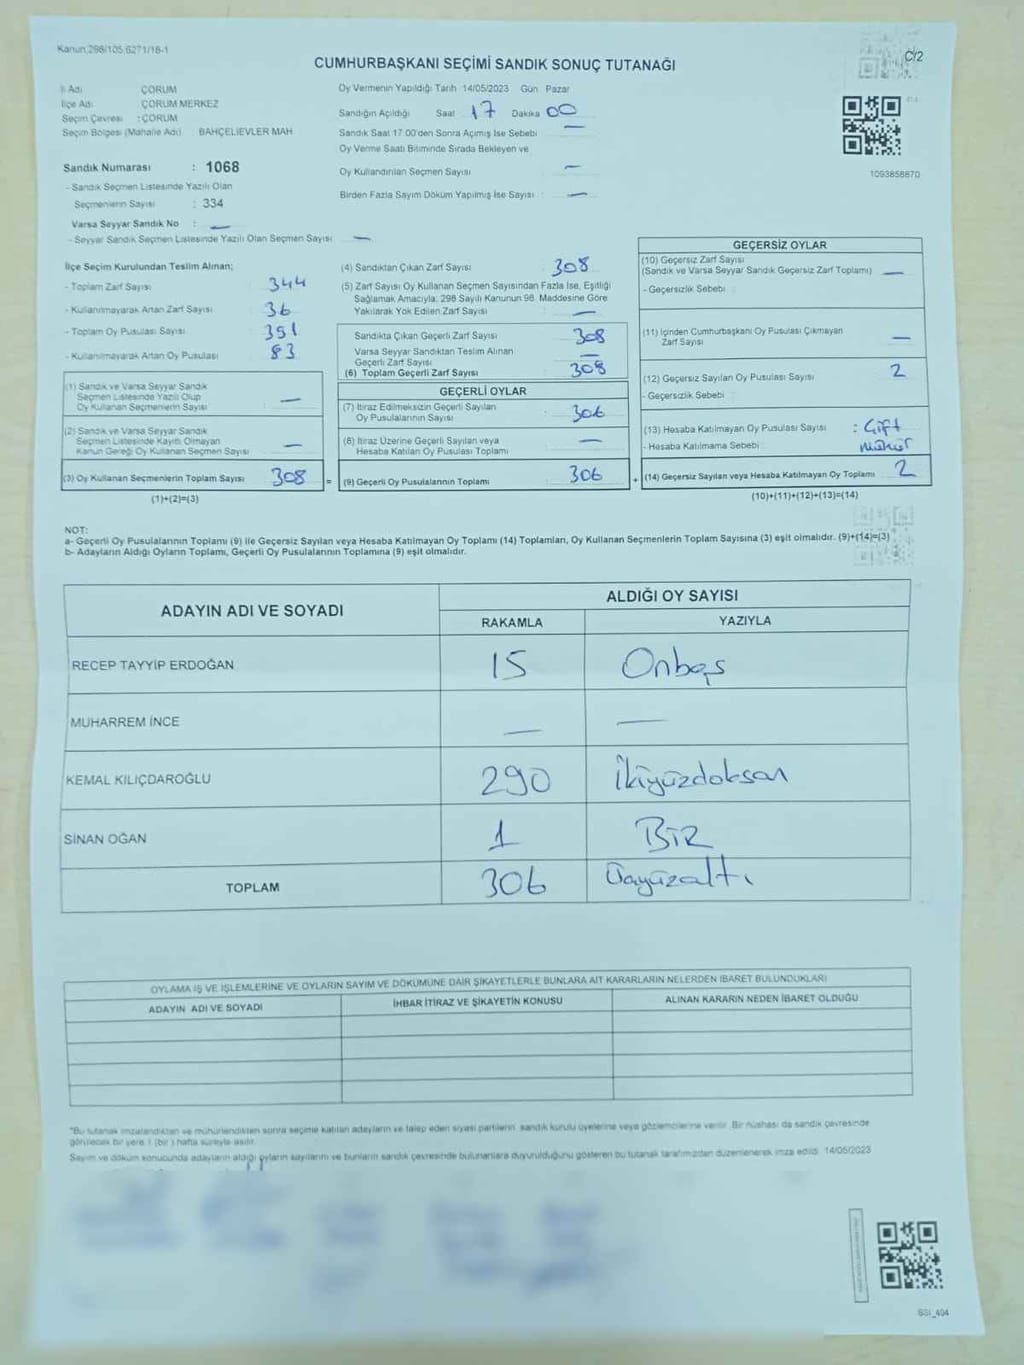 Kanun:298/105,6271/18-1
C/2
CUMHURBAŞKANI SEÇİMİ SANDIK SONUÇ TUTANAĞI
İl Adı ÇORUM
İlçe Adı ÇORUM MERKEZ
Seçim Çevresi :ÇORUM
Seçim Bölgesi (Mahalle Adı) BAHÇELİEVLER MAH
Oy Vermenin Yapıldığı Tarih 14/05/2023 Gün Pazar
Sandığın Açıldığı Saat 17 Dakika 00
Sandık Saat 17.00'den Sonra Açılmış İse Sebebi —
Oy Verme Saati Bitiminde Sırada Bekleyen ve
Oy Kullandırılan Seçmen Sayısı —
Birden Fazla Sayım Döküm Yapılmış İse Sayısı : —
1093858870
Sandık Numarası : 1068
- Sandık Seçmen Listesinde Yazılı Olan
Seçmenlerin Sayısı : 334
Varsa Seyyar Sandık No : —
- Seyyar Sandık Seçmen Listesinde Yazılı Olan Seçmen Sayısı —
İlçe Seçim Kurulundan Teslim Alınan;
- Toplam Zarf Sayısı 344
- Kullanılmayarak Artan Zarf Sayısı 36
- Toplam Oy Pusulası Sayısı 391
- Kullanılmayarak Artan Oy Pusulası 83
(1) Sandık ve Varsa Seyyar Sandık
Seçmen Listesinde Yazılı Olup
Oy Kullanan Seçmenlerin Sayısı —
(2) Sandık ve Varsa Seyyar Sandık
Seçmen Listesinde Kayıtlı Olmayan
Kanun Gereği Oy Kullanan Seçmen Sayısı —
(3) Oy Kullanan Seçmenlerin Toplam Sayısı 308 =
(1)+(2)=(3)
(4) Sandıktan Çıkan Zarf Sayısı 308
(5) Zarf Sayısı Oy Kullanan Seçmen Sayısından Fazla İse, Eşitliği
Sağlamak Amacıyla; 298 Sayılı Kanunun 98. Maddesine Göre
Yakılarak Yok Edilen Zarf Sayısı —
Sandıkta Çıkan Geçerli Zarf Sayısı 308
Varsa Seyyar Sandıktan Teslim Alınan
Geçerli Zarf Sayısı —
(6) Toplam Geçerli Zarf Sayısı 308
GEÇERLİ OYLAR
(7) İtiraz Edilmeksizin Geçerli Sayılan
Oy Pusulalarının Sayısı 306
(8) İtiraz Üzerine Geçerli Sayılan veya
Hesaba Katılan Oy Pusulası Toplamı —
(9) Geçerli Oy Pusulalarının Toplamı 306 +
GEÇERSİZ OYLAR
(10) Geçersiz Zarf Sayısı
(Sandık ve Varsa Seyyar Sandık Geçersiz Zarf Toplamı) —
- Geçersizlik Sebebi
(11) İçinden Cumhurbaşkanı Oy Pusulası Çıkmayan
Zarf Sayısı —
(12) Geçersiz Sayılan Oy Pusulası Sayısı 2
- Geçersizlik Sebebi
(13) Hesaba Katılmayan Oy Pusulası Sayısı : Çift
- Hesaba Katılmama Sebebi mühür
(14) Geçersiz Sayılan veya Hesaba Katılmayan Oy Toplamı 2
(10)+(11)+(12)+(13)=(14)
NOT:
a- Geçerli Oy Pusulalarının Toplamı (9) ile Geçersiz Sayılan veya Hesaba Katılmayan Oy Toplamı (14) Toplamları, Oy Kullanan Seçmenlerin Toplam Sayısına (3) eşit olmalıdır. (9)+(14)=(3)
b- Adayların Aldığı Oyların Toplamı, Geçerli Oy Pusulalarının Toplamına (9) eşit olmalıdır.
ADAYIN ADI VE SOYADI
ALDIĞI OY SAYISI
RAKAMLA YAZIYLA
RECEP TAYYİP ERDOĞAN 15 Onbeş
MUHARREM İNCE — —
KEMAL KILIÇDAROĞLU 290 İkiyüzdoksan
SİNAN OĞAN 1 BİR
TOPLAM 306 Üçyüzaltı
OYLAMA İŞ VE İŞLEMLERİNE VE OYLARIN SAYIM VE DÖKÜMÜNE DAİR ŞİKAYETLERLE BUNLARA AİT KARARLARIN NELERDEN İBARET BULUNDUKLARI
ADAYIN ADI VE SOYADI İHBAR İTİRAZ VE ŞİKAYETİN KONUSU ALINAN KARARIN NEDEN İBARET OLDUĞU
*Bu tutanak imzalandıktan ve mühürlendikten sonra seçime katılan adayların ve talep eden siyasi partilerin sandık kurulu üyelerine veya gözlemcilerine verilir. Bir nüshası da sandık çevresinde
görülecek bir yere 1 (bir) hafta süreyle asılır.
Sayım ve döküm sonucunda adayların aldığı oyların sayılarını ve bunların sandık çevresinde bulunanlara duyurulduğunu gösteren bu tutanak tarafımızdan düzenlenerek imza edildi. 14/05/2023